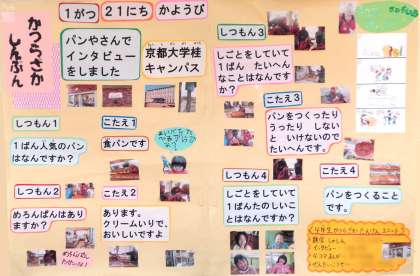 かつらざか
しんぶん
1がつ
21にち
かようび
パンやさんで
インタビュー
をしました
京都大学桂
キャンパス
しつもん1
1ぱん人気のパン
はなんですか?
こたえ1
食パンです
しつもん2
めろんぱんはあり
ますか?
こたえ2
あります。
クリームいりで、
おいしいですよ
しつもん3
しごとをしていて
1ぱん たいへん
なことはなんです
か?
こたえ3
パンをつくったり
うったり しない
と いけないので
たいへんです。
しつもん4
しごとをしていて
1ぱんたのしいこ
とはなんですか?
こたえ4
パンをつくること
です。
インタビュー